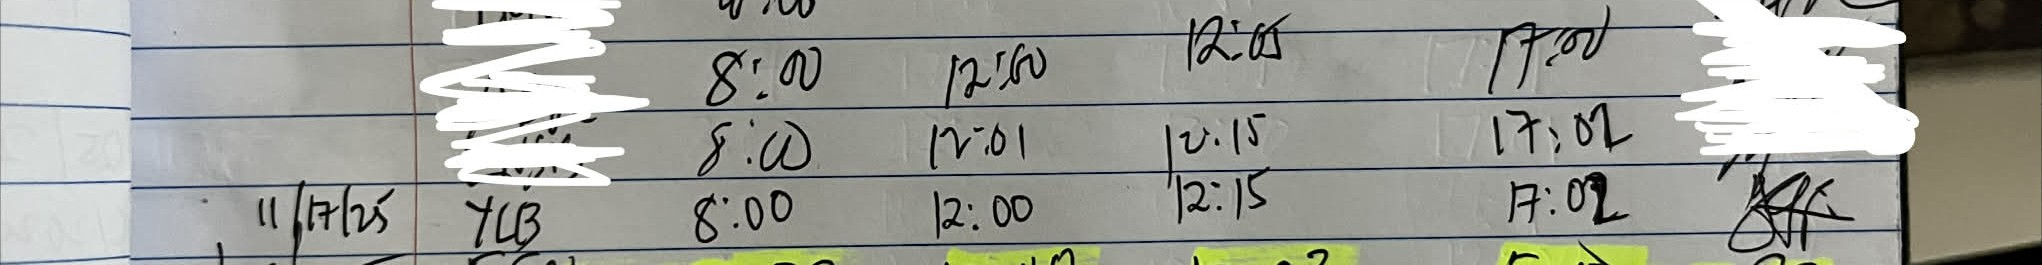 8:00 12:00 12:05 17:00
8:00 12:01 12:15 17:02
11/17/25 YLB 8:00 12:00 12:15 17:02